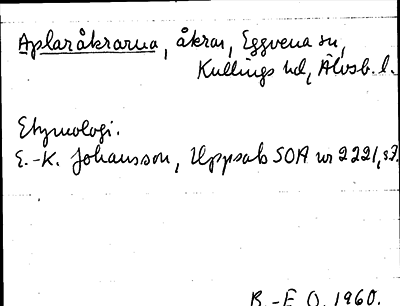 Aplaråkrarna, åkrar, Eggvena sn,
Kullings hd, Älvsb. l.
Etymologi.
E.-K. Johansson, Uppsats SOA nr 2221, s.7.
B.-E. O. 1960.